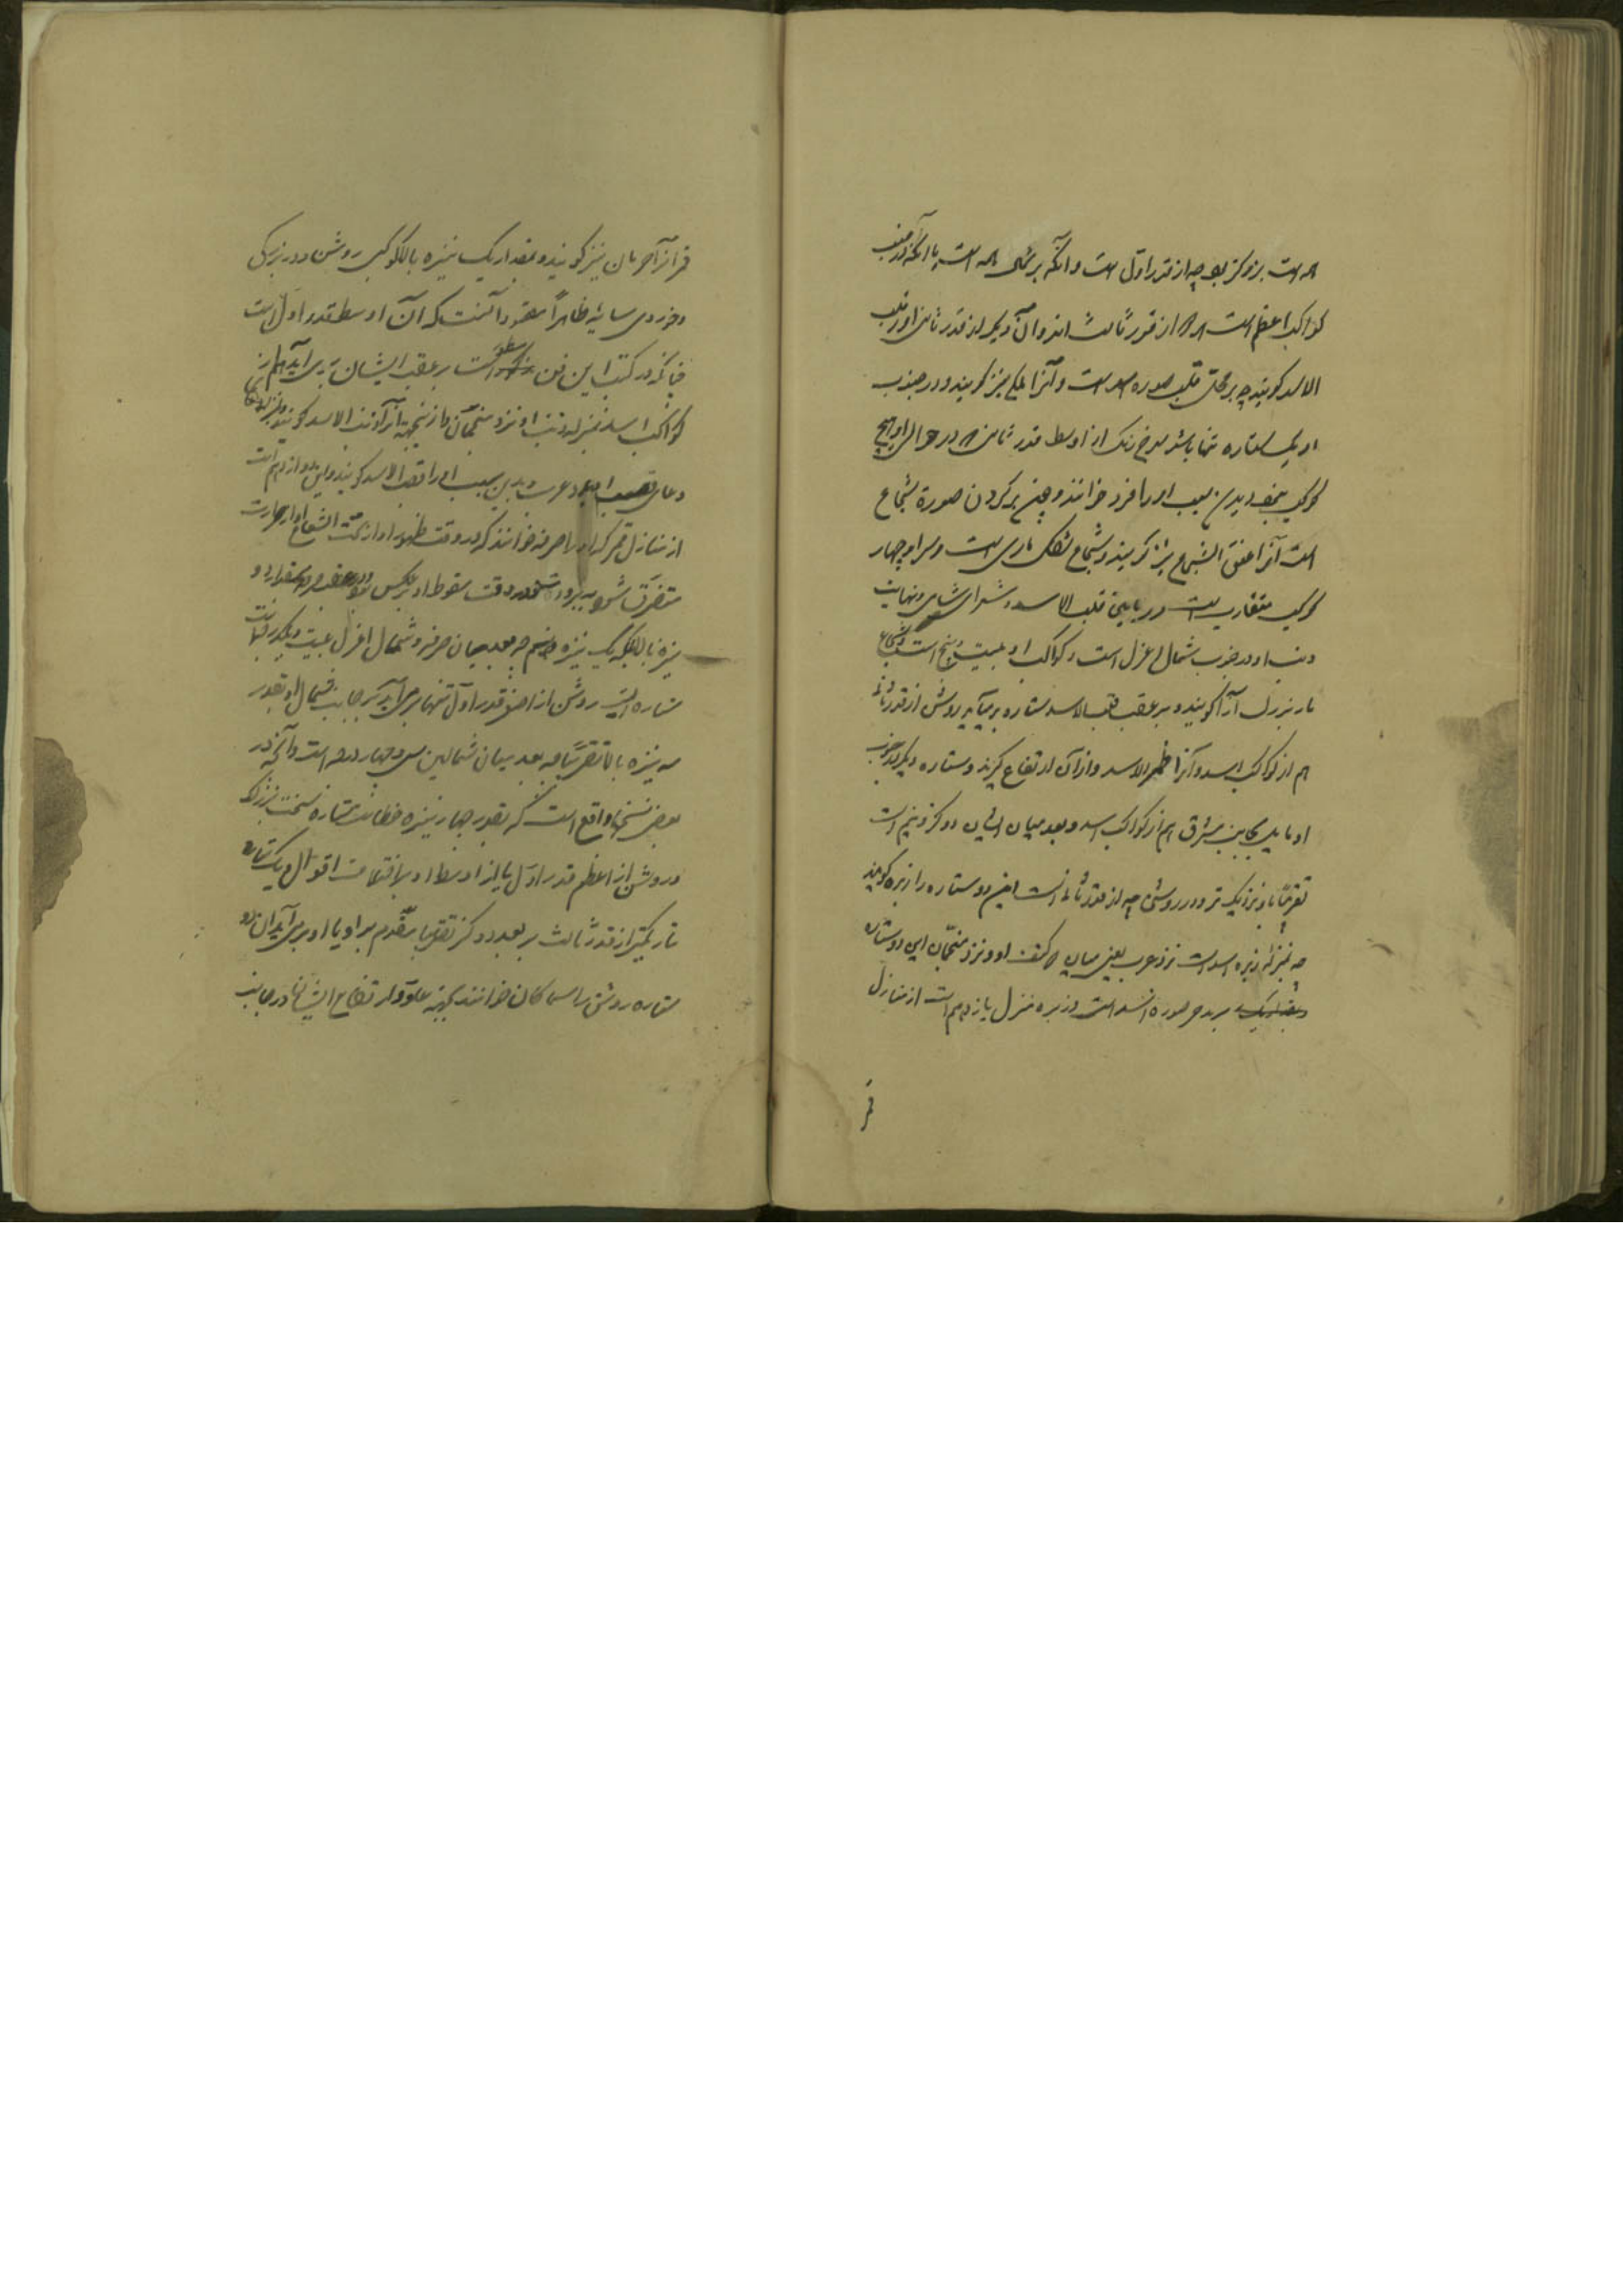 همه است بزرگتر بود چه از قدر اول است و آنکه بر شمالی همه است با آنکه در جنب
کواکب اعظم است همه از قدر ثالث اند و آن دیگر از قدر ثانی او را قلب
الاسد گویند چه بر محل قلب صوره اسد است و آنرا ملکی نیز گویند و در جنوب
او یک ستاره تنها باشد سرخ رنگ از اوسط قدر ثانی که در حوالی او هیچ
کوکب نبود بدین سبب او را فرد خوانند و چون بر گردن صورة شجاع
است آنرا عنق الشجاع نیز گویند و شجاع بشکل ماری است و سر او چهار
کوکب متقارب است در مابین قلب الاسد و شعرای شامی و نهایت
ذنب او در جنوب شمال اعزل است و کواکب او بیست و پنج است و شجاع
مار بزرگ را گویند و بر عقب قلب الاسد ستاره برمیآید روشن از قدر ثانی
هم از کواکب اسد و آنرا ظهر الاسد و ازان ارتفاع گیرند و ستاره دیگر در جنوب
او مایل بجانب مشرق هم از کواکب اسد و بعد میان ایشان دو گز و نیم است
تقریباً باو نزدیک تر و در روشنی چه از قدر ثالث است این دو ستاره را زبره گویند
چه بمنزله زبره اسد است نزد عرب یعنی میان دو کتف او و نزد منجمان این دو ستاره
بر بدن صوره اسد است و زبره منزل یازدهم است از منازل
قمر
قمر آنرا خرتان نیز گویند و بمقدار یک نیزه بالا کوکبی روشن و در بزرگی
و خوردی میانه ظاهراً مقصود آنست که آن اوسط قدر اول است
چنانکه در کتب این فن مسطور است بر عقب ایشان برمی آید هم از
کواکب اسد بمنزله ذنب او نزد منجمان و ازینجهة آنرا ذنب الاسد گویند و بمنزله
وعای قضیب اسد نزد عرب و بدین سبب او را قنب الاسد گویند و این دوازدهم است
از منازل قمر که او را صرفه خوانند که در وقت ظهور او از تحت الشعاع حرارت
متصرف شود ببرودت و در وقت سقوط او بر عکس بود و بر عقب صرفه بمقدار دو
نیزه بالا بلکه یک نیزه و نیم چه بعد میان صرفه و شمال اعزل بیست و یکدرجه است
ستاره ایست روشن از اصغر قدر اول تنها برمی آید بر جانب شمال او بقدر
سه نیزه بالا تقریباً چه بعد میان شمالین سی و چهار درجه است و آنچه در
بعض نسخها واقع است که بقدر چهار نیزه خطاست ستاره سخت بزرگ
و روشن از اعظم قدر اول یا از اوسط او باختلاف اقوال و یک ستاره
تاریکتر از قدر ثالث بر بعد دو گز تقریباً مقدم بر او با او برمی آید آن دو
ستاره روشن را سماکان خوانند بجهة علو و ارتفاع ایشان در جانب